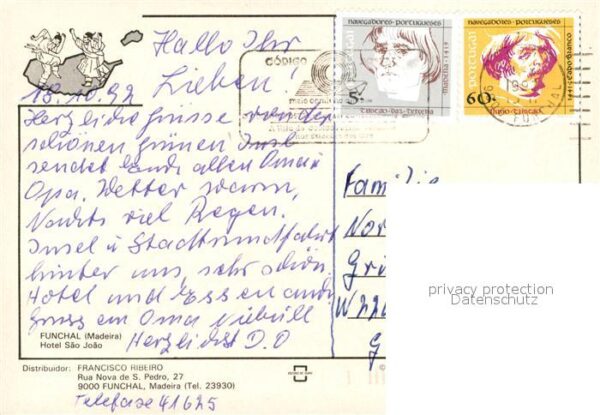 Hallo Ihr
Lieben
18.10.92
Herzliche Grüsse von der
schönen grünen Insel
sendet Euch allen Oma u
Opa. Wetter warm,
Nachts viel Regen.
Insel u Stadtrundfahrt
hinter uns, sehr schön.
Hotel und Essen auch
Gruss an Oma Niebüll
Herzlichst D.O
FUNCHAL (Madeira)
Hotel São João
Distribuidor: FRANCISCO RIBEIRO
Rua Nova de S. Pedro, 27
9000 FUNCHAL, Madeira (Tel. 23930)
Telefase 41625
CÓDIGO
NAVEGADORES PORTUGUESES
PORTUGAL
5.-
TRISTÃO VAZ TEIXEIRA
NAVEGADORES PORTUGUESES
PORTUGAL
60.-
NUNO TRISTÃO
1441 • CABO BRANCO
FUNCHAL
Familie
Nor
Gri
W226
G
privacy protection
Datenschutz